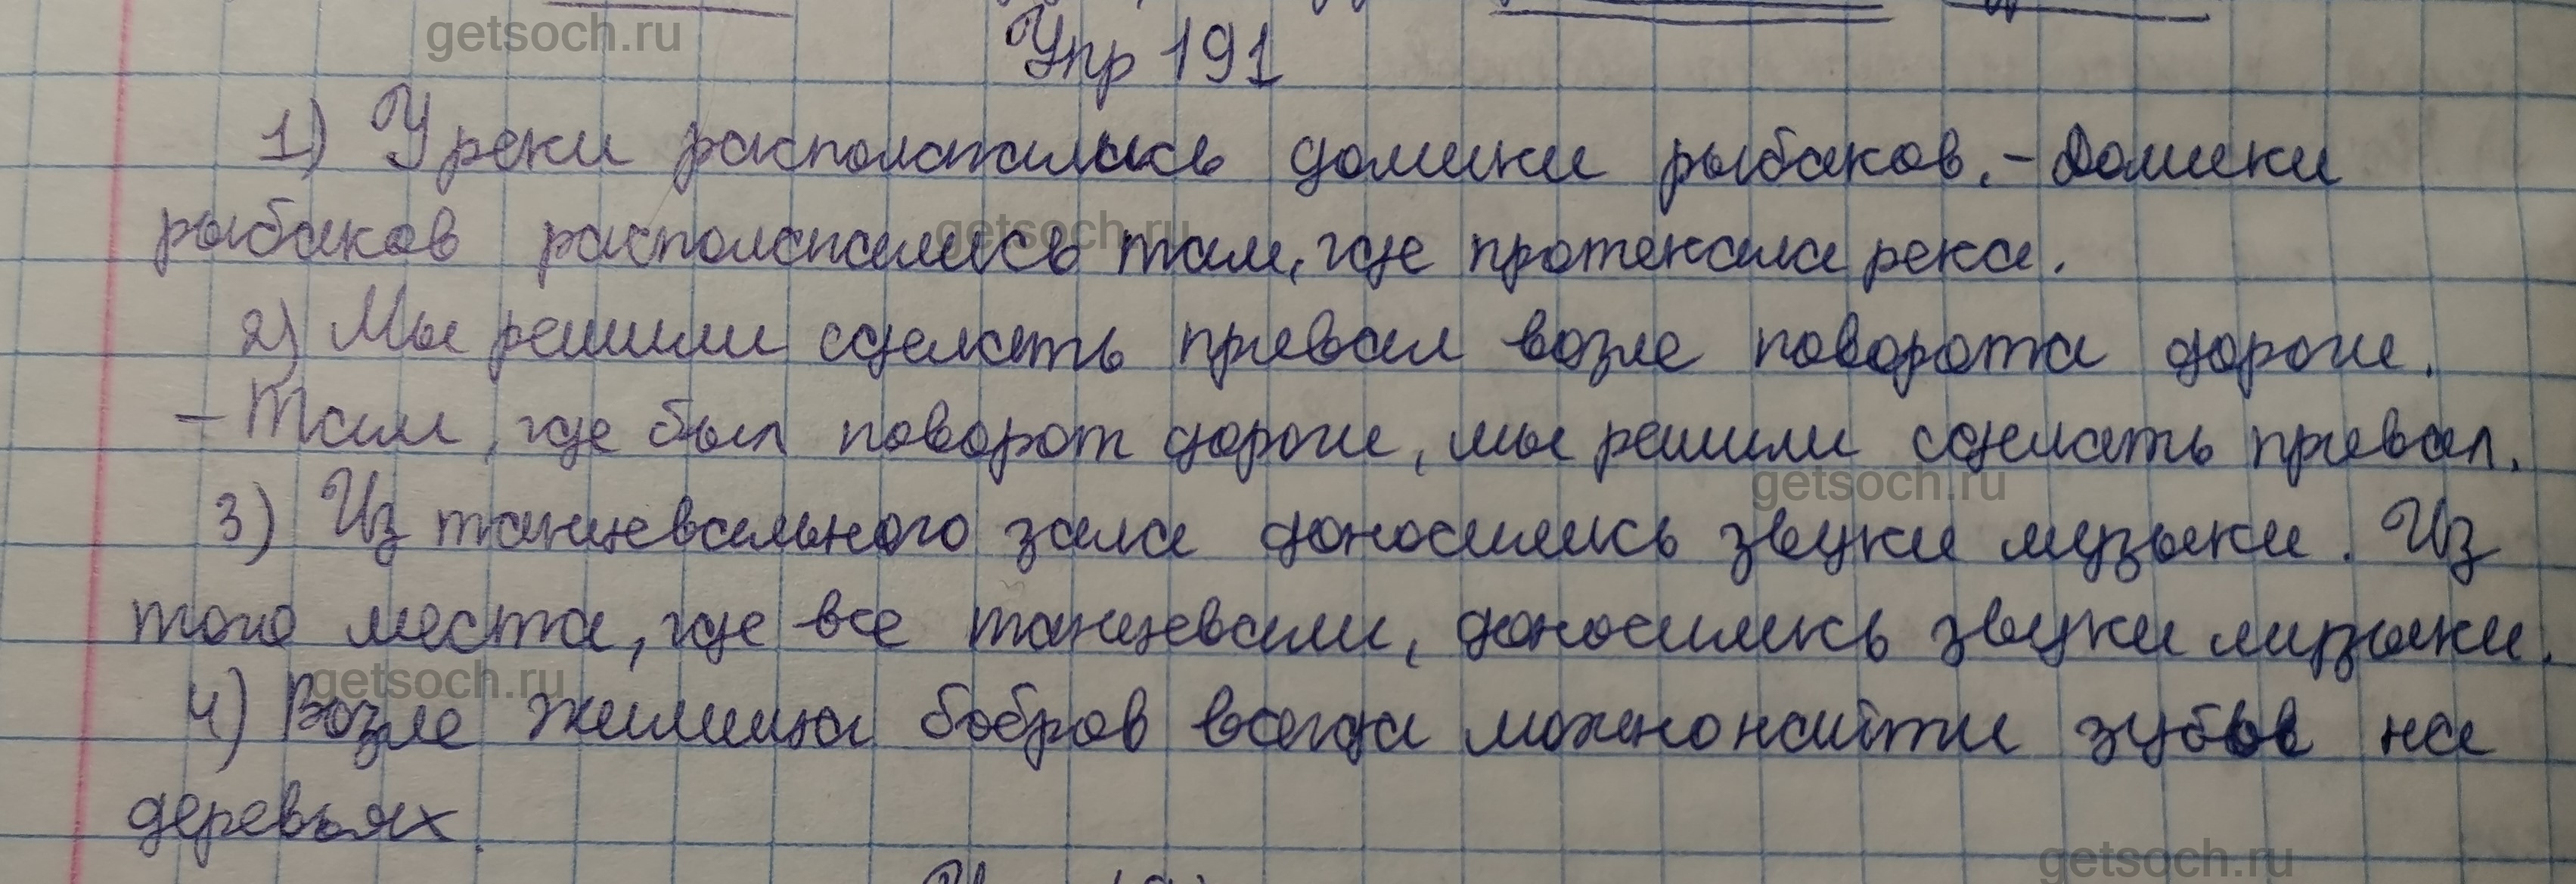 Упр 191
1) У реки располагались домики рыбаков. - Домики
рыбаков располагались там, где протекала река.
2) Мы решили сделать привал возле поворота дороги.
- Там, где был поворот дороги, мы решили сделать привал.
3) Из танцевального зала доносились звуки музыки. Из
того места, где все танцевали, доносились звуки музыки.
4) Возле жилища бобров всегда можно найти зубы на
деревьях.
getsoch.ru
getsoch.ru
getsoch.ru
getsoch.ru
getsoch.ru